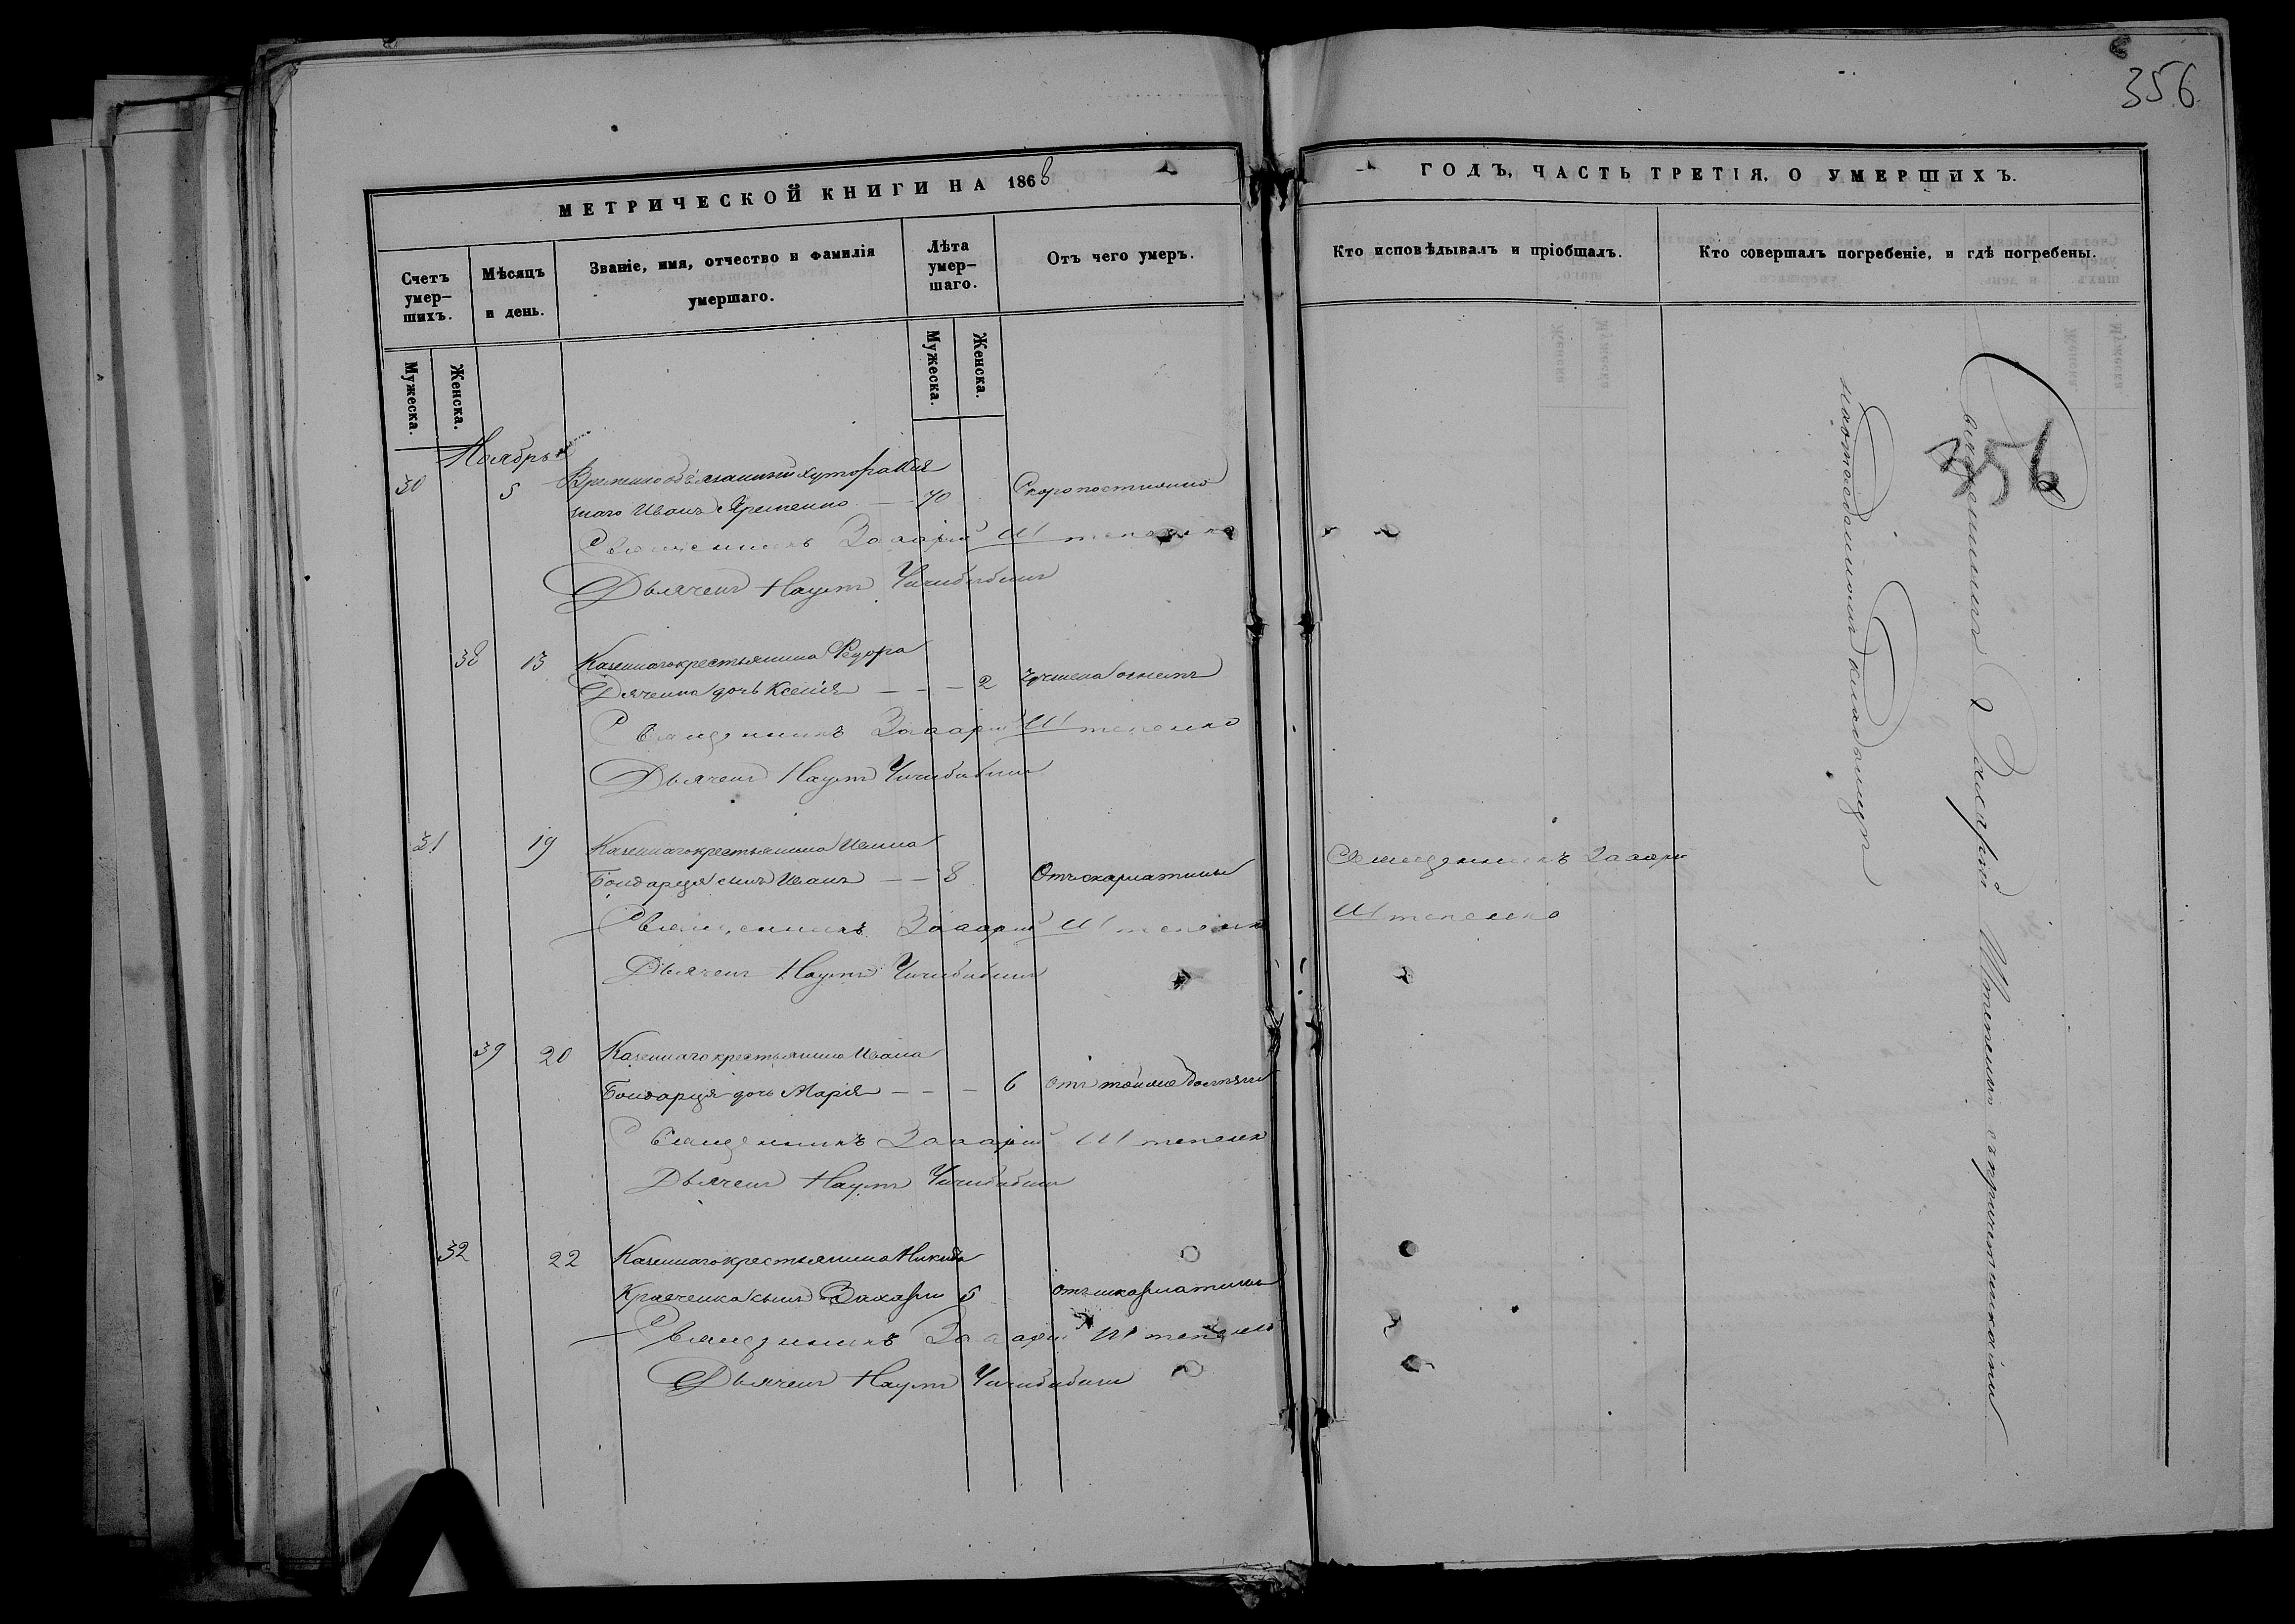 356
МЕТРИЧЕСКОЙ КНИГИ НА 1868
ГОДЪ, ЧАСТЬ ТРЕТІЯ, О УМЕРШИХЪ.
Счетъ умер-шихъ.
Мѣсяцъ и день.
Званіе, имя, отчество и фамилія умершаго.
Лѣта умер-шаго.
Отъ чего умеръ.
Кто исповѣдывалъ и пріобщалъ.
Кто совершалъ погребеніе, и гдѣ погребены.
Мужеска.
Женска.
Мужеска.
Женска.
Ноябрь
30 5 Временнообязанный хутора
Иванъ Яременко 70 Скоропостижно
Священникъ Захарій Штепенко
Дьячекъ Наумъ Чичибабинъ
38 13 Казеннаго крестьянина Федора
Дяченка дочь Ксенія 2
Священникъ Захарій Штепенко
Дьячекъ Наумъ Чичибабинъ
31 19 Казеннаго крестьянина Ивана
Бондарця сынъ Иванъ 8 Отъ скарлатины
Священникъ Захарій
Штепенко
Священникъ Захарій Штепенко
Дьячекъ Наумъ Чичибабинъ
39 20 Казеннаго крестьянина Ивана
Бондарця дочь Марія 6 Отъ той же болезни
Священникъ Захарій Штепенко
Дьячекъ Наумъ Чичибабинъ
32 22 Казеннаго крестьянина Никиты
Кравченка сынъ Захарій 5 Отъ шкарлатины
Священникъ Захарій Штепенко
Дьячекъ Наумъ Чичибабинъ
356
Священникъ Захарій Штепенко съ причетниками
на приходскомъ кладбищѣ